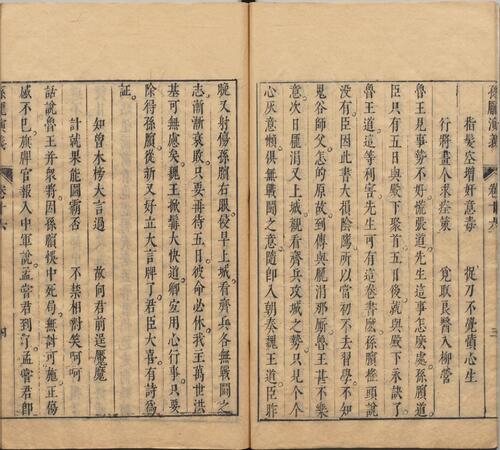 孫龐演義 卷十六 三
指髪空增奸意毒 捉刀不覺痛心生
行將盡命求痊策 覓取良醫入柳營
魯王見事勢不好慌張道先生這事怎麽處孫臏道
臣只有五日與殿下聚首五日後就與殿下永訣了
魯王道這等利害先生可有這卷書麽孫臏摇頭說
没有臣因此書大損陰隲所以當初不去習學不知
鬼谷師父怎的原故到傳與龐涓那厮魯王甚不樂
意次日龐涓又上城觀看齊兵攻城之勢只見个个
心灰意懶俱無戰鬪之意隨卽入朝奏魏王道臣昨
晚又射傷孫臏右眼侵早上城看齊兵各無戰鬪之
志漸漸衰敗只要毋待五日彼命必休我主萬世洪
基可無慮矣魏王掀髯大快道卿宜用心行事只要
除得孫臏從新又好立大言牌了君臣大喜有詩爲
証
知曾木榜大言過 故向君前逞魘魔
計就果能圖霸否 不禁相對笑呵呵
話說魯王幷衆將因孫臏悞中死局無計可施正傷
感不已旗牌官報入中軍說孟嘗君到了孟嘗君卽
孫龐演義 卷十六 四